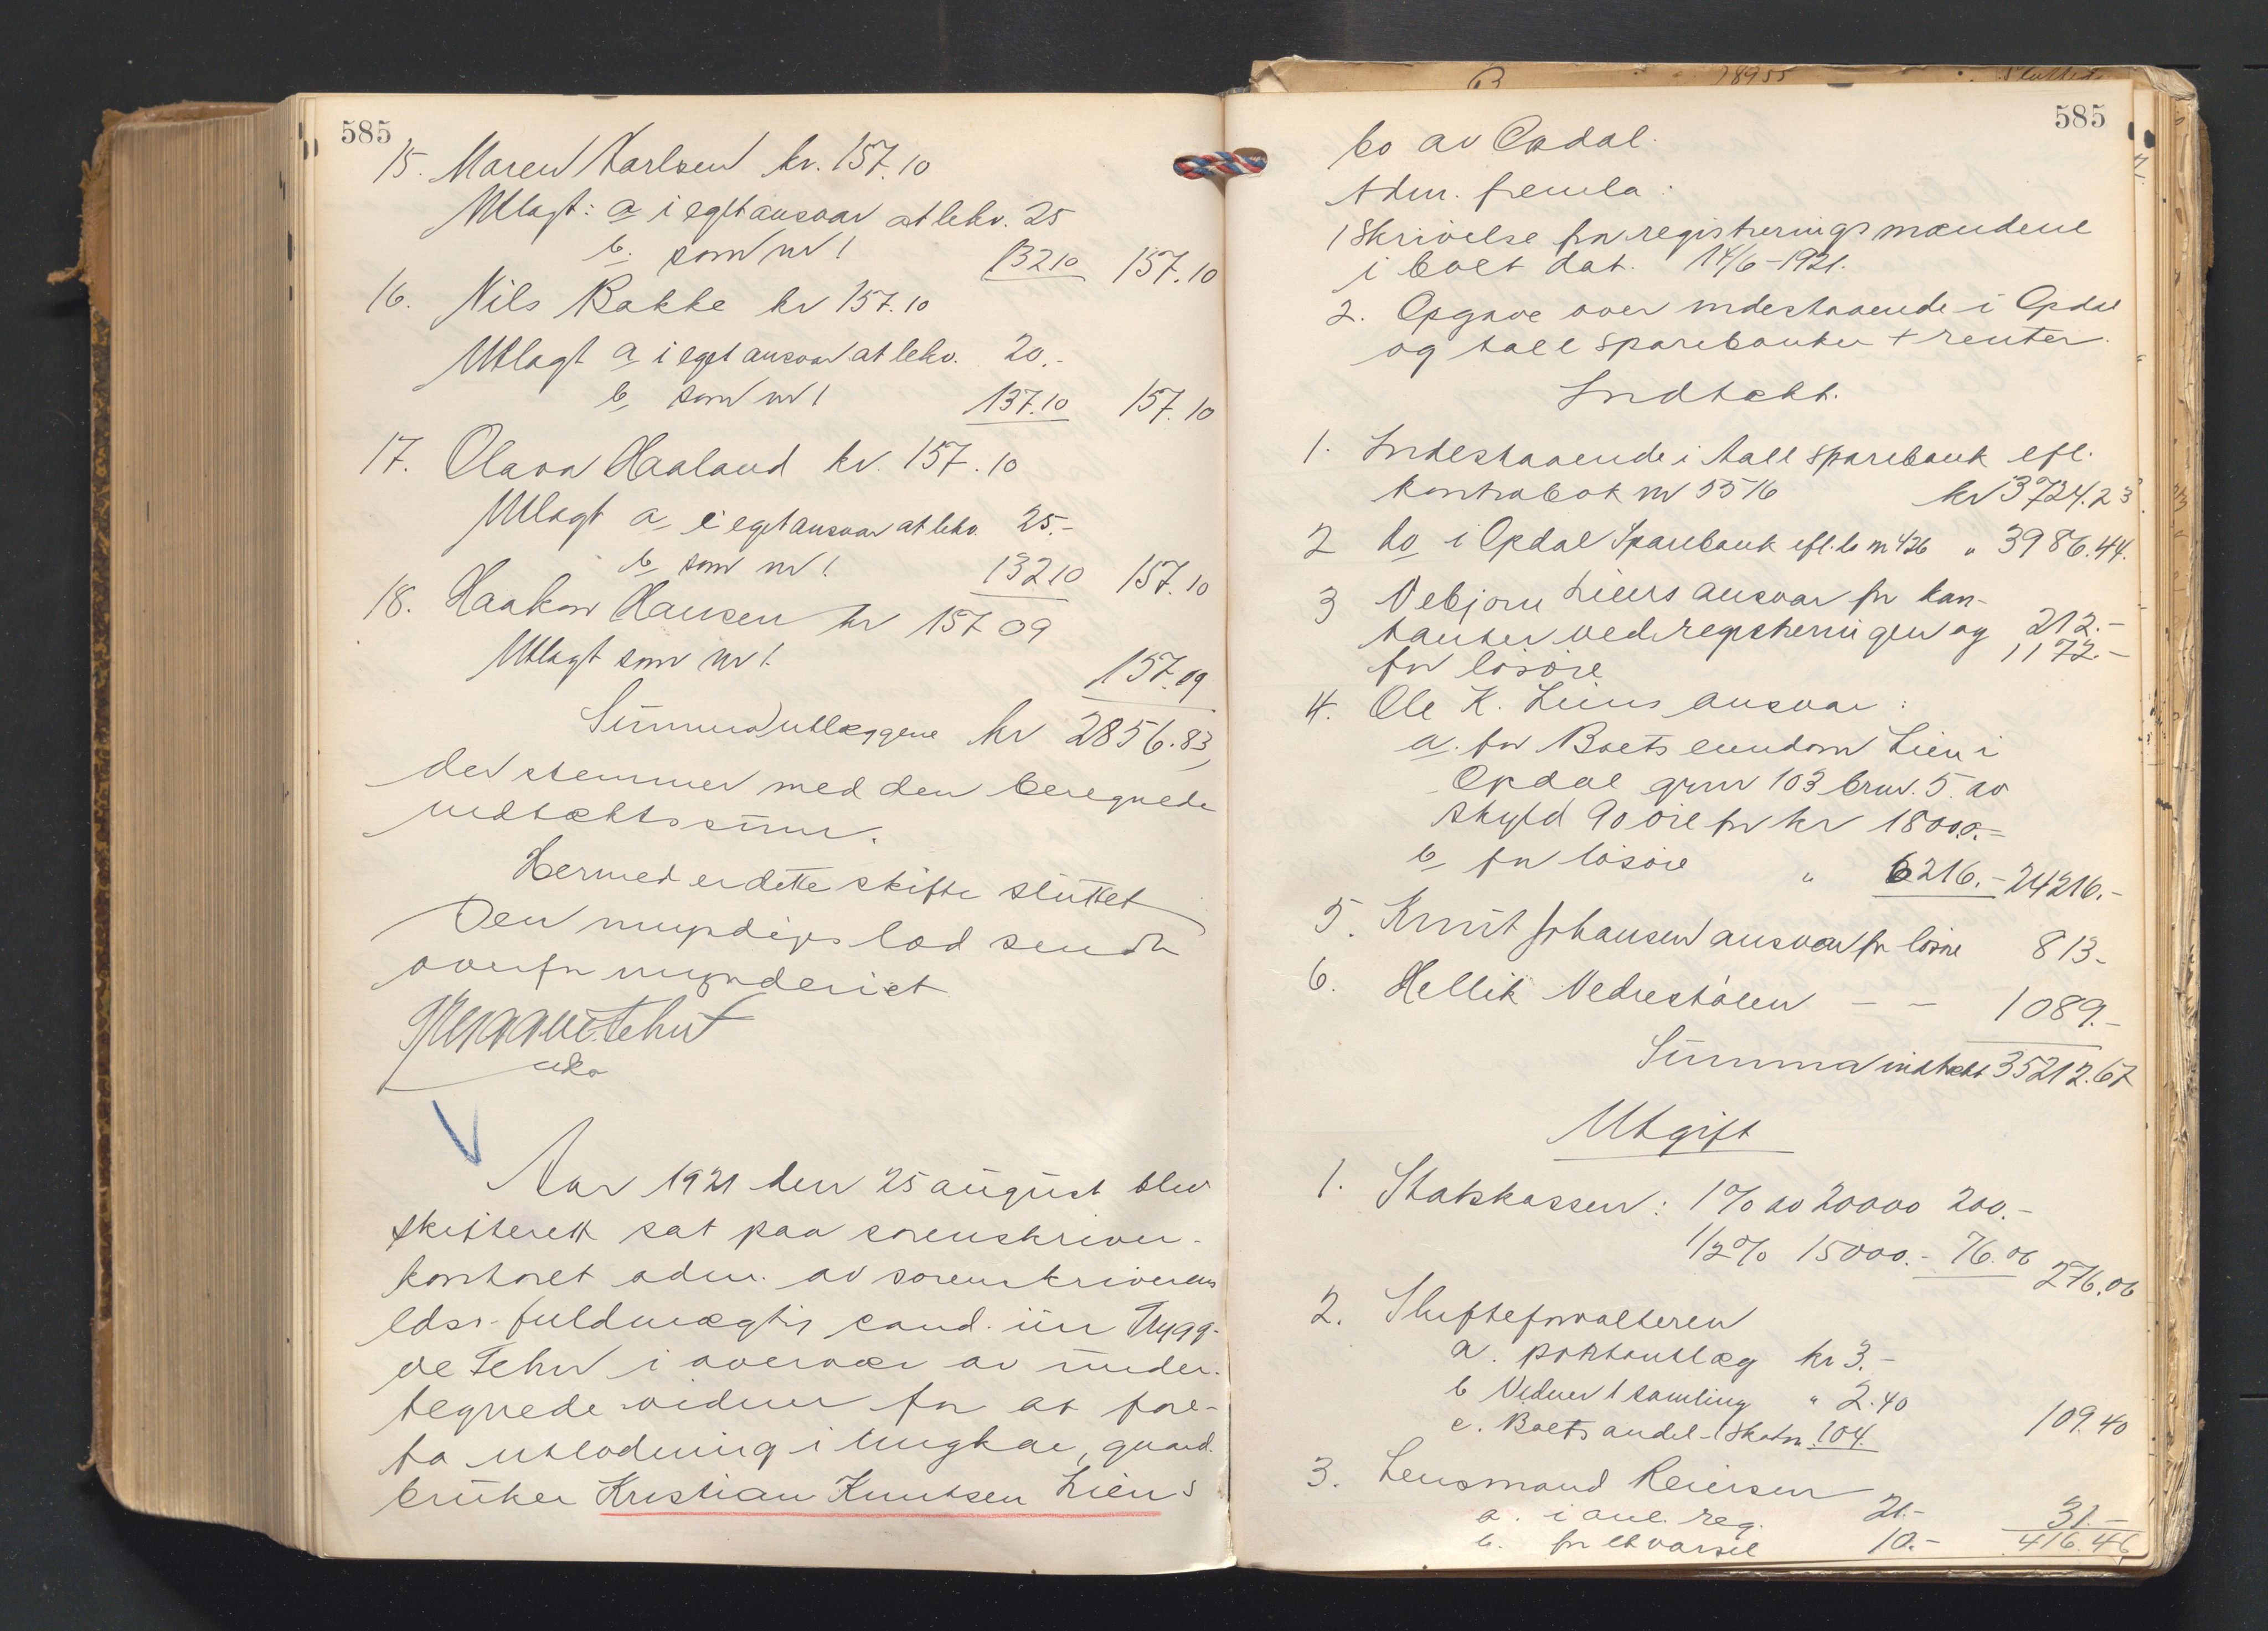 585
15. Maren Karlsen kr. 157.10
Utlagt: a i eget ansvar at lekv. 25
b. som nr 1 132 10 157.10
16. Nils Bakke kr 157.10
Utlagt a i eget ansvar at lekv. 20.-
b som nr 1 137.10 157.10
17. Olava Haaland kr. 157.10
Utlagt a i eget ansvar at lekv. 25.-
b som nr 1. 132 10 157.10
18. Haakon Hansen kr 157 09
Utlagt som nr 1. 157.09
Summa utlæggene kr 2856.83,
der stemmer med den beregnede
indtægtssum.
Hermed er dette skifte sluttet
Den myndiges lod sendt
overformynderiet
Tryggve Tehn
cska
Aar 1921 den 25 august blev
skifterett sat paa sorenskriver-
kontoret adm. av sorenskriverens
edsv. fuldmægtig cand. jur Trygg-
ve Tehn i overvær av under-
tegnede vidner for at fore-
ta utlodning i ungkar, gaard-
bruker Kristian Knutsen Liens
585
bo av Opdal.
Adm. fremla:
1 Skrivelse fra registreringsmændene
i boet dat. 14/6-1921.
2. Opgave over indestaaende i Opdal
og Aall sparebanker + renter.
Indtækt.
1. Indestaaende i Aall sparebank efl.
kontrabok nr 5516 kr 3724.23
2 do i Opdal Sparebank efl. b nr 426 " 3986.44.
3 Nebjørn Liens ansvar for kon-
tanter ved registreringen og 212.-
for løsøre 1172.-
4. Ole K. Liens ansvar:
a. for Boets eiendom Lien i
Opdal grnr 103 brnr. 5. av
skyld 90 øre for kr 18000.-
b for løsøre " 6216.- 24216.-
5. Knut Johansen ansvar for løsøre 813.-
6. Hellik Nedrestølen - - 1089.-
Summa indtækt 35212.67
Utgift
1. Statskassen: 1% av 20000 200.-
1/2% 15000.- 76.06 276.06
2. Skifteforvalteren
a. portoutlæg kr 3.-
b Vidner 1 samling " 2.40
c. Boets andel i skatn. 104. 109.40
3. Lensmand Reiersen
a. i anl. reg. 21.-
b. for et varsel 10.- 31.-
416.46